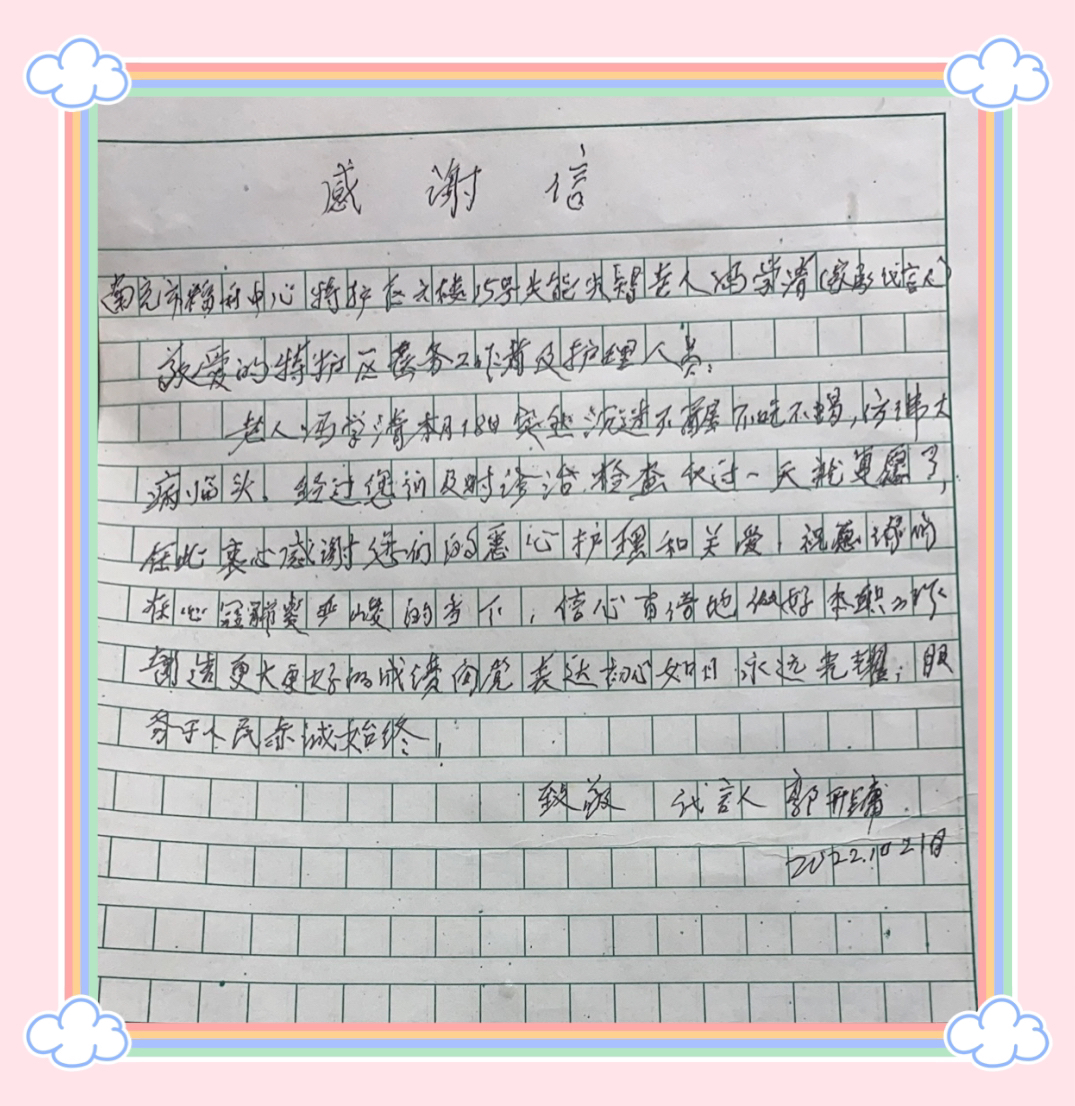 感谢信
南充市福利中心特护区六楼15号失能失智老人冯学清(家属代言人)
敬爱的特护区医务工作者及护理人员:
老人冯学清本月18日突然沉迷不醒不吃不喝,
病临头。经过您们及时诊治、检查仅过一天就复愿了,
在此衷心感谢您们的悉心护理和关爱!祝愿
在心冠肺炎严峻的当下,信心百倍地做好本职工作
创造更大更好的成绩向党表达初心如日永远光耀;服
务于人民赤诚始终!
致敬 代言人 郭
2022.10 21日